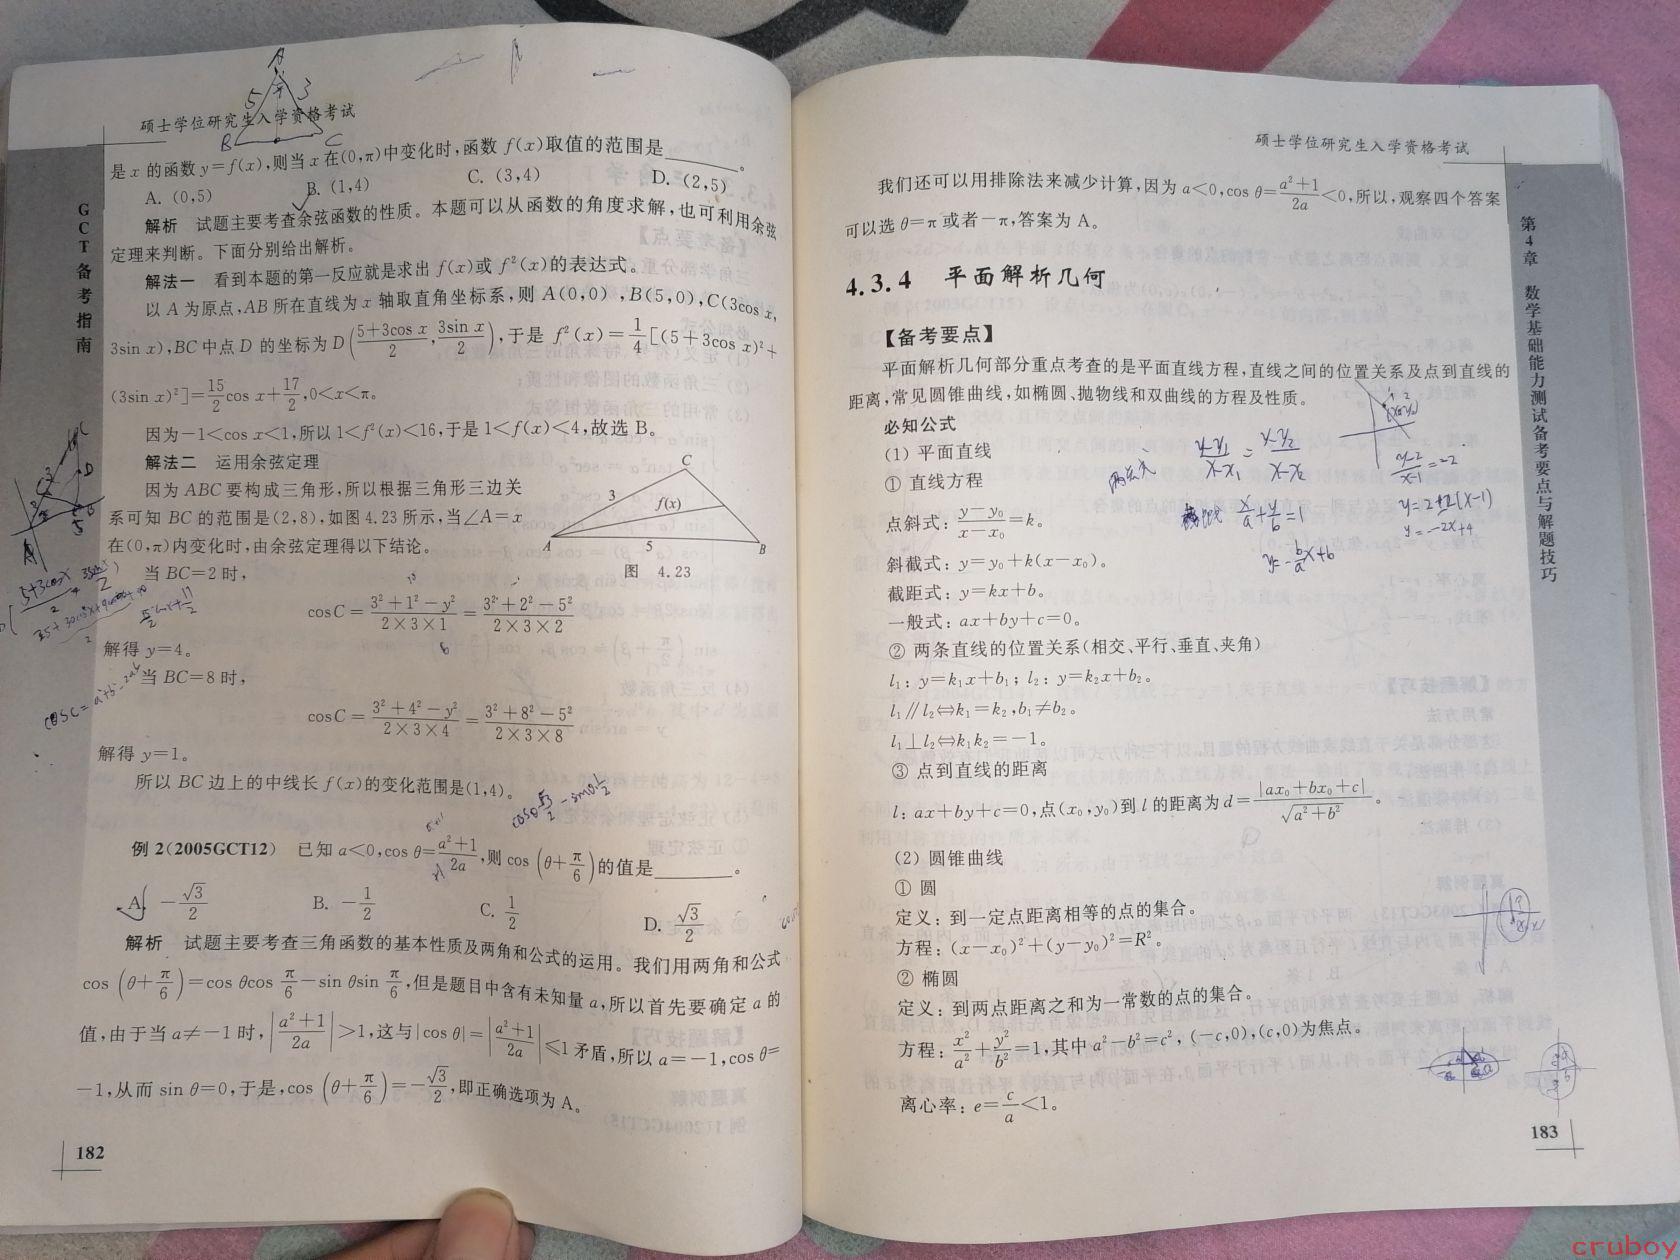 硕士学位研究生入学资格考试
是 x 的函数 y=f(x),则当 x 在(0,π)中变化时,函数 f(x)取值的范围是______。
A. (0,5) B. (1,4) C. (3,4) D. (2,5)
解析 试题主要考查余弦函数的性质。本题可以从函数的角度求解,也可利用余弦
定理来判断。下面分别给出解析。
解法一 看到本题的第一反应就是求出 f(x)或 f²(x)的表达式。
以 A 为原点,AB 所在直线为 x 轴取直角坐标系,则 A(0,0),B(5,0),C(3cos x,
3sin x),BC中点 D 的坐标为 D((5+3cos x)/2, 3sin x/2),于是 f²(x)=1/4[(5+3cos x)²+
(3sin x)²]=15/2 cos x+17/2,0<x<π。
因为-1<cos x<1,所以1<f²(x)<16,于是1<f(x)<4,故选 B。
解法二 运用余弦定理
因为 ABC 要构成三角形,所以根据三角形三边关
系可知 BC 的范围是(2,8),如图4.23所示,当∠A=x
在(0,π)内变化时,由余弦定理得以下结论。
C
3
f(x)
A
5
B
图 4.23
当 BC=2 时,
cosC=(3²+1²-y²)/(2×3×1)=(3²+2²-5²)/(2×3×2)
解得 y=4。
当 BC=8 时,
cosC=(3²+4²-y²)/(2×3×4)=(3²+8²-5²)/(2×3×8)
解得 y=1。
所以 BC 边上的中线长 f(x)的变化范围是(1,4)。
例 2(2005GCT12) 已知 a<0,cos θ=(a²+1)/2a,则 cos(θ+π/6)的值是______。
A. -√3/2 B. -1/2 C. 1/2 D. √3/2
解析 试题主要考查三角函数的基本性质及两角和公式的运用。我们用两角和公式
cos(θ+π/6)=cos θcos π/6-sin θsin π/6,但是题目中含有未知量 a,所以首先要确定 a 的
值,由于当 a≠-1 时,|(a²+1)/2a|>1,这与|cos θ|=|(a²+1)/2a|≤1矛盾,所以 a=-1,cos θ=
-1,从而 sin θ=0,于是,cos(θ+π/6)=-√3/2,即正确选项为 A。
182
GCT备考指南
A
5 3
B C
硕士学位研究生入学资格考试
我们还可以用排除法来减少计算,因为 a<0,cos θ=(a²+1)/2a<0,所以,观察四个答案
可以选 θ=π 或者-π,答案为 A。
4.3.4 平面解析几何
【备考要点】
平面解析几何部分重点考查的是平面直线方程,直线之间的位置关系及点到直线的
距离,常见圆锥曲线,如椭圆、抛物线和双曲线的方程及性质。
必知公式
(1) 平面直线
① 直线方程
点斜式:(y-y₀)/(x-x₀)=k。
斜截式:y=y₀+k(x-x₀)。
截距式:y=kx+b。
一般式:ax+by+c=0。
② 两条直线的位置关系(相交、平行、垂直、夹角)
l₁:y=k₁x+b₁;l₂:y=k₂x+b₂。
l₁∥l₂⇔k₁=k₂,b₁≠b₂。
l₁⊥l₂⇔k₁k₂=-1。
③ 点到直线的距离
l:ax+by+c=0,点(x₀,y₀)到 l 的距离为 d=|ax₀+bx₀+c|/√(a²+b²)。
(2) 圆锥曲线
① 圆
定义:到一定点距离相等的点的集合。
方程:(x-x₀)²+(y-y₀)²=R²。
② 椭圆
定义:到两点距离之和为一常数的点的集合。
方程:x²/a²+y²/b²=1,其中 a²-b²=c²,(-c,0),(c,0)为焦点。
离心率:e=c/a<1。
183
第4章 数学基础能力测试备考要点与解题技巧
两点式 (y-y₁)/(x-x₁)=(y-y₂)/(x-x₂)
x/a+y/b=1
y=-b/a x+b
(y-2)/(x-1)=-2
y=-2x+4
cruboy